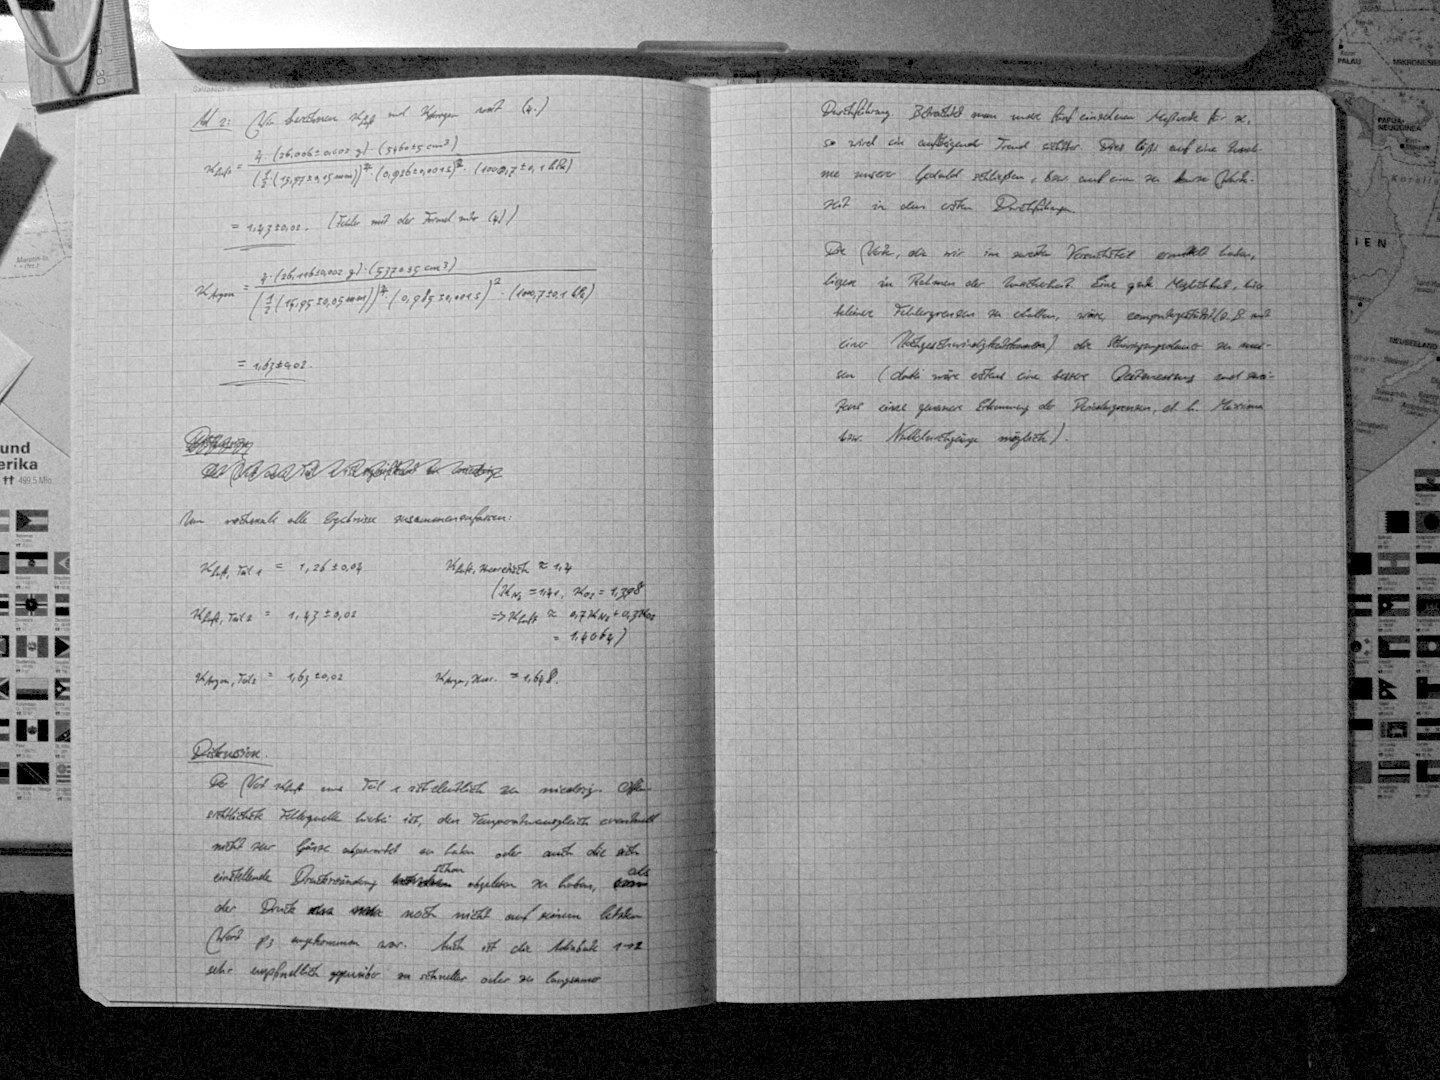 Ad 2: Wir berechnen κ_Luft und κ_Argon mit (4.)
κ_Luft = 4 · (26,006 ± 0,002 g) · (5460 ± 5 cm³) / (½ (15,97 ± 0,05 mm))⁴ · (0,936 ± 0,001 s)² · (1000,7 ± 0,1 hPa)
= 1,43 ± 0,02. (Fehler mit der Formel unter (4))
κ_Argon = 4 · (26,116 ± 0,002 g) · (5370 ± 5 cm³) / (½ (15,95 ± 0,05 mm))⁴ · (0,985 ± 0,001 s)² · (1000,7 ± 0,1 hPa)
= 1,63 ± 0,02.
Um nochmals alle Ergebnisse zusammenzufassen:
κ_Luft, Teil 1 = 1,26 ± 0,04 κ_Luft, theoretisch ≈ 1,4
(κ_N₂ = 1,41, κ_O₂ = 1,398
κ_Luft, Teil 2 = 1,43 ± 0,02 => κ_Luft ≈ 0,7 κ_N₂ + 0,3 κ_O₂
= 1,4064)
κ_Argon, Teil 2 = 1,63 ± 0,02 κ_Argon, theor. = 1,648.
Diskussion.
Der Wert κ_Luft aus Teil 1 ist deutlich zu niedrig. Offen-
sichtlichste Fehlerquelle hierbei ist, den Temperaturausgleich eventuell
nicht zur Gänze abgewartet zu haben oder auch die sich
einstellende Druckänderung schon abgelesen zu haben, als
der Druck noch nicht auf seinem letzten
Wert p₃ angekommen war. Auch ist die Adiabate 1→2
sehr empfindlich gegenüber zu schneller oder zu langsamer
Durchführung. Betrachtet man unsere fünf einzelnen Meßwerte für κ,
so wird ein aufsteigender Trend sichtbar. Dies läßt auf eine Zunah-
me unserer Geduld schließen, bzw. auf eine zu kurze Warte-
zeit in den ersten Durchführungen.
Die Werte, die wir im zweiten Versuchsteil ermittelt haben,
liegen im Rahmen der Unsicherheit. Eine gute Möglichkeit, hier
kleinere Fehlergrenzen zu erhalten, wäre, computergestützt (z.B. mit
einer Hochgeschwindigkeitskamera) die Schwingungsdauer zu mes-
sen (dabei wäre erstens eine bessere Zeitmessung und zwei-
tens eine genauere Erkennung der Periodengrenzen, d. h. Maxima
bzw. Nulldurchgänge möglich).
PALAU
MIKRONESIEN
PAPUA-
NEUGUINEA
LIEN
NEUSEELAND
und
erika
499,5 Mio.
30